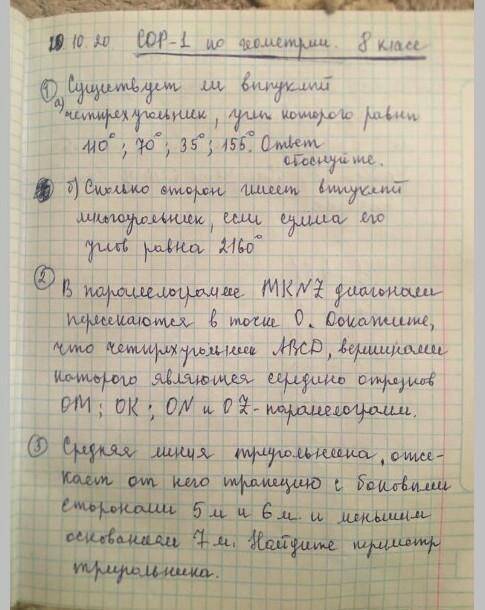 20.10.20. СОР-1 по геометрии. 8 класс
① Существует ли выпуклый
а) четырехугольник, углы которого равны
110°; 70°; 35°; 155°. Ответ
обоснуйте.
б) Сколько сторон имеет выпуклый
многоугольник, если сумма его
углов равна 2160°
② В параллелограмме MKNZ диагонали
пересекаются в точке О. Докажите,
что четырехугольник ABCD, вершинами
которого являются середино отрезков
OM; OK; ON и OZ-параллелограмм.
③ Средняя линия треугольника, отсе-
кает от него трапецию с боковыми
сторонами 5 м и 6 м. и меньшим
основанием 7 м. Найдите периметр
треугольника.